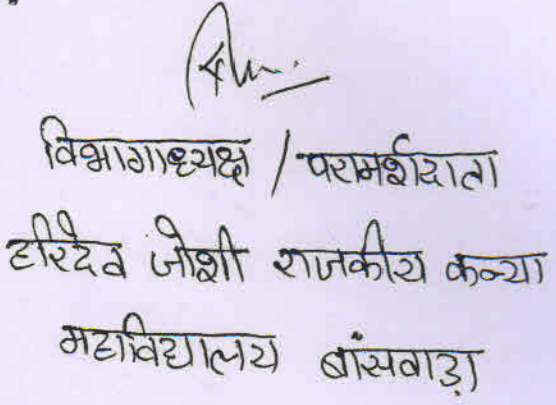 विभागाध्यक्ष / परामर्शदाता
हरिदेव जोशी राजकीय कन्या
महाविद्यालय बांसवाड़ा